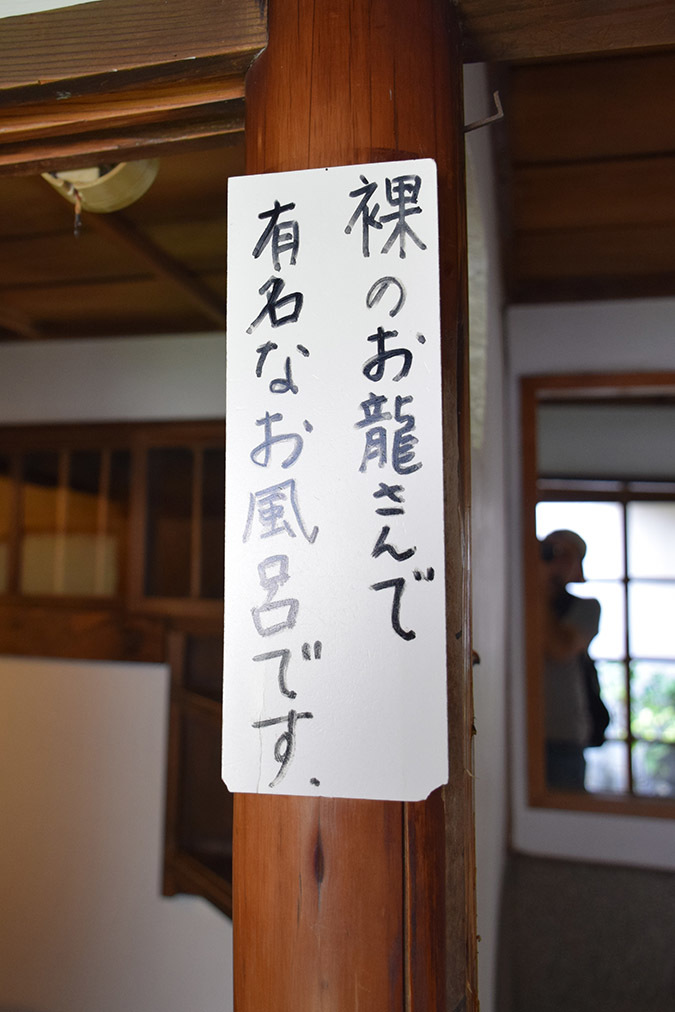 裸のお龍さんで
有名なお風呂です.